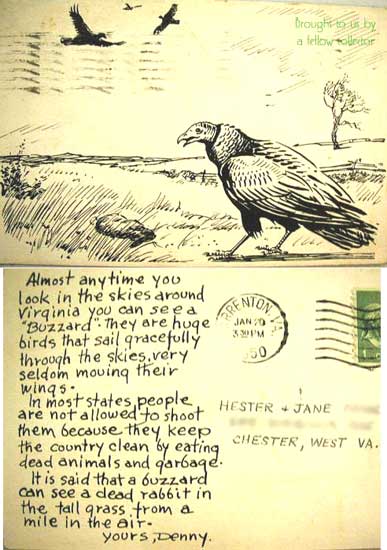 Brought to us by
a fellow collector
Almost anytime you
look in the skies around
Virginia you can see a
"Buzzard". They are huge
birds that sail gracefully
through the skies, very
seldom moving their
wings.
In most states people
are not allowed to shoot
them because they keep
the country clean by eating
dead animals and garbage.
It is said that a buzzard
can see a dead rabbit in
the tall grass from a
mile in the air.
Yours, Denny.
JAN 20
3 30 PM
HESTER & JANE
CHESTER, WEST VA.